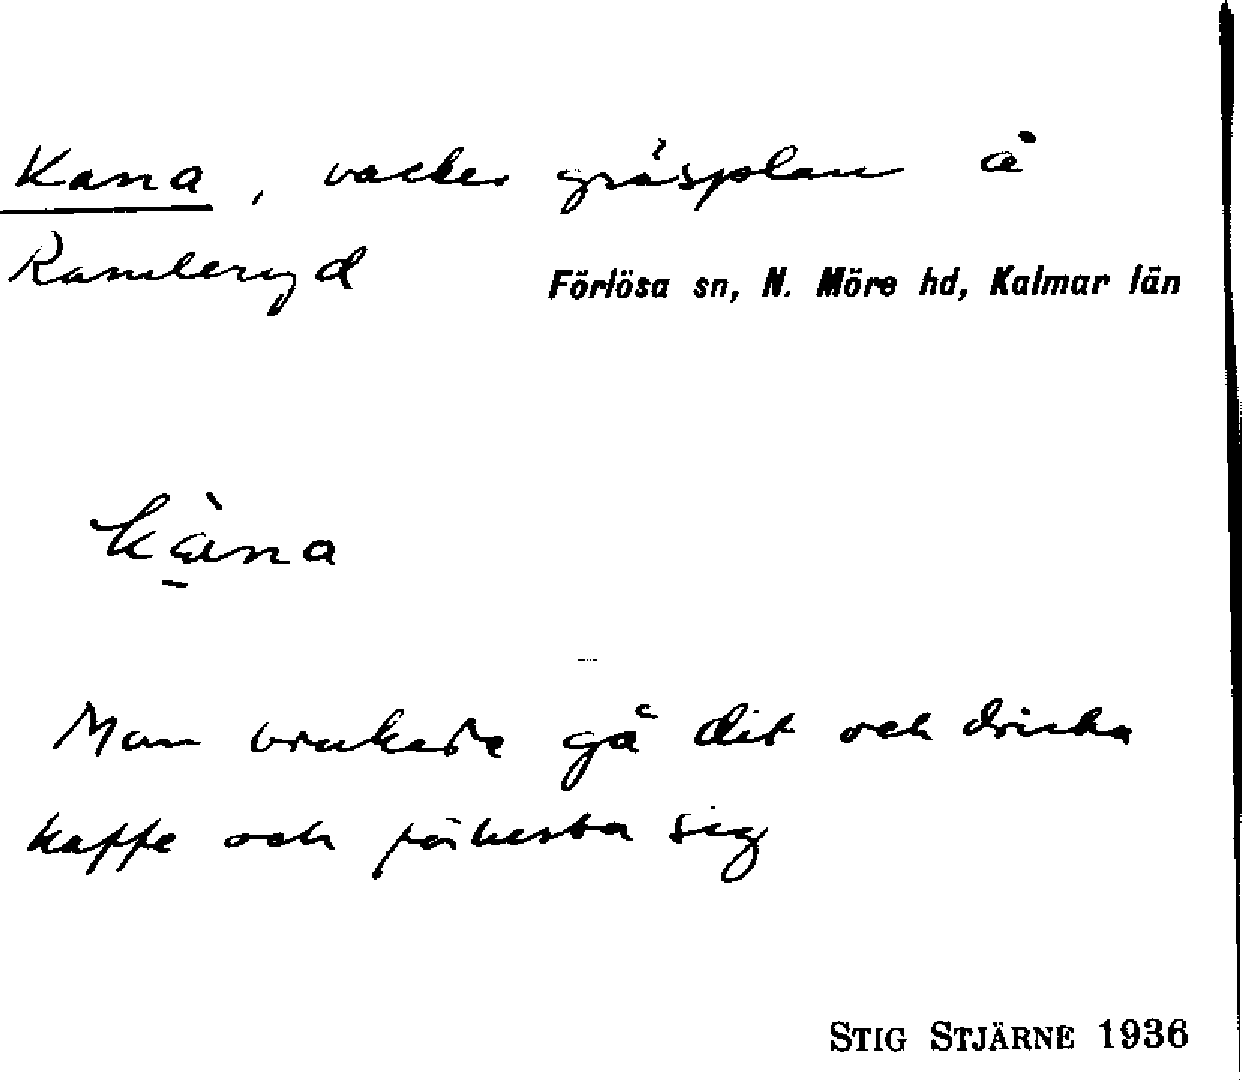 Kana, vacker gräsplan å
Ramleryd
Förlösa sn, N. Möre hd, Kalmar län
kàna
Man brukade gå dit och dricka
kaffe och förlusta sig
STIG STJÄRNE 1936